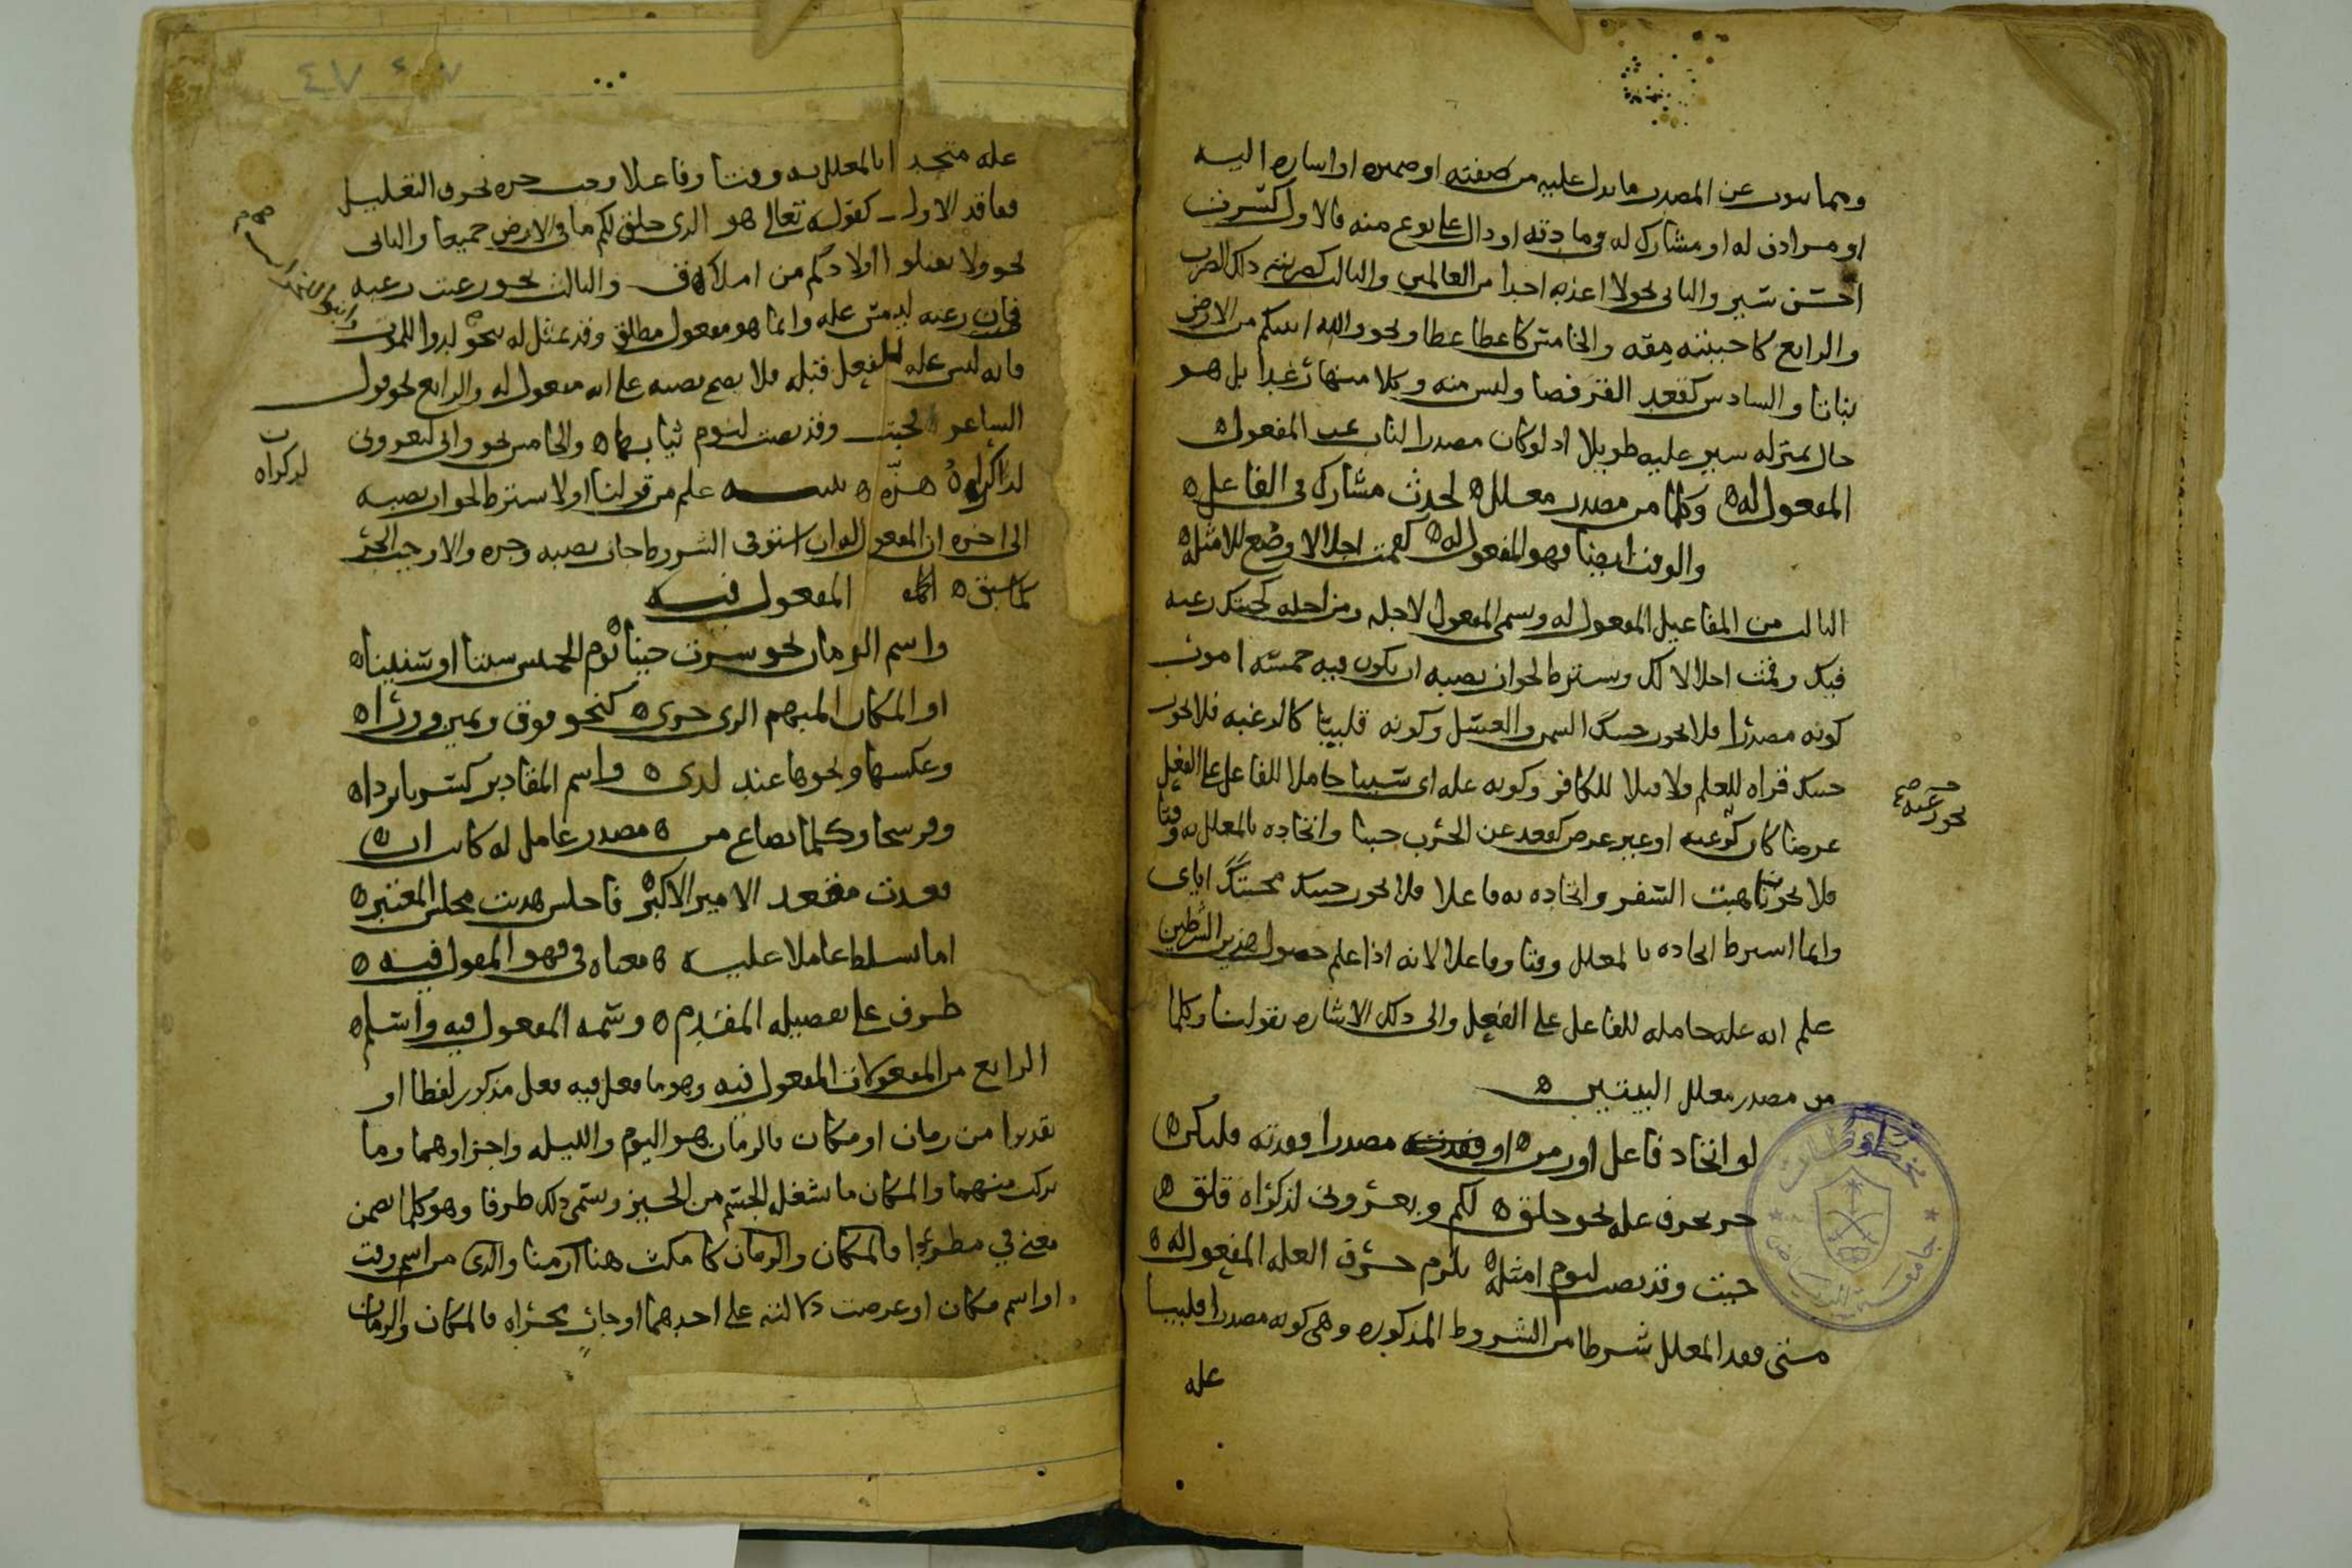 ومما ينوب عن المصدر ما يدل عليه من صفته او ضميره او اشاره اليه
او مرادف له او مشارك له في مادته او دال على نوع منه فالاول كسرت
احسن سير والثاني نحو لا اعذبه احدا من العالمين والثالث كضربته ذلك الضرب
والرابع كاحببته مقه والخامس كاعطا عطا ونحو والله انبتكم من الارض
نباتا والسادس كقعد القرفصا وليس منه وكلا منها رغدا بل هو
حال بمنزله سير عليه طويلا اذ لو كان مصدرا لناب عن المفعول
المفعول له وكلما من مصدر معلل لحدث مشارك في الفاعل
والوقت ايضا فهو المفعول له كقمت اجلالا وضع للامثله
الثالث من المفاعيل المفعول له ويسمى المفعول لاجله ومن اجله كجيتك رغبه
فيك وقمت اجلالا لك ويشترط لجواز نصبه ان يكون فيه خمسة امور
كونه مصدرا فلا يجوز جيتك السمن والعسل وكونه قلبيا كالرغبه فلا يجوز
جيتك قراه للعلم ولا قتلا للكافر وكونه عله اي سببا حاملا للفاعل على الفعل
عرضا كان كرغبه او غير عرض كقعد عن الحرب جبنا واتحاده بالمعلل به وقتا
فلا يجوز تاهبت السفر واتحاده به فاعلا فلا يجوز جيتك محبتك اياي
وانما اشترط اتحاده بالمعلل وقتا وفاعلا لانه اذا علم حصول هذين الشرطين
علم انه عله حامله للفاعل على الفعل والى ذلك الاشاره بقولنا وكلما
من مصدر معلل البيتين
لو اتحاد فاعل او زمن او فقدت مصدرا فقدته فليكن
جر بحرف عله نحو خلق لكم وتعروني لذكراه قلق
جيت وقد نضت لنوم امثله يلزم حرف العله المفعول له
متى فقد المعلل شرطا من الشروط المذكوره وهي كونه مصدرا قلبيا
عله
نحو رغبه
عله متحدا بالمعلل به وقتا وفاعلا وجب جره بحرف التعليل
ففاقد الاول كقوله تعالى هو الذي خلق لكم ما في الارض جميعا والثاني
نحو ولا تقتلوا اولادكم من املاق والثالث نحو رغبت رغبه
فان رغبه ليس عله وانما هو مفعول مطلق وقد يمثل له بنحو لدوا للموت
فانه ليس عله للفعل قبله فلا يصح نصبه على انه مفعول له والرابع نحو قول
الشاعر فجيت وقد نضت لنوم ثيابها والخامس نحو واني لتعروني
لذكراك هزه تنبيه علم من قولنا اولا يشترط لجواز نصبه
الى اخره ان المفعول له ان استوفى الشروط جاز نصبه وجره والا وجب الجر
كما سبق المفعول فيه
واسم الزمان نحو سرت حينا يوم الخميس سبتا او سنينا
او المكان المبهم الذي حوى كنحو فوق ويمين وورا
وعكسها ونحوها عند لدى واسم المقادير كسر باردا
وفرسخا وكلما يصاغ من مصدر عامل له كاين
قعدت مقعد الامير الاكبر فاجلس هديت مجلس المعتبر
اما تسلط عاملا عليه معناه في فهو المفعول فيه
ظرف على تفصيله المقدم وسمه المفعول فيه واسلم
الرابع من المفعولات المفعول فيه وهو ما فعل فيه فعل مذكور لفظا او
تقديرا من زمان او مكان فالزمان هو اليوم والليله واجزاوهما وما
تركب منهما والمكان ما شغل الجسم من الحيز ويسمى ذلك ظرفا وهو كلما تضمن
معنى في مطردا فالمكان والزمان كامكث هنا ازمنا والذي من اسم وقت
او اسم مكان او عرضت دلالته على احدهما او جار مجراه فالمكان والزمان
لذكراه